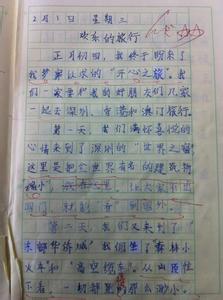 2月1日 星期三
欢乐的旅行
正月初四，我终于盼来了
我梦寐以求的“开心之旅”。我
们一家要和我的好朋友们几家
一起去深圳、香港和澳门旅行。
第一天，我们满怀喜悦的
心情来到了深圳的“世界之窗”
这里是把全世界有名的建筑物
缩小
让大家不出
国门，就能看
第二天，我们又来到了“
东部华侨城”我们坐了“森林小
火车”和“高空缆车”。从山顶往
下看，一切都